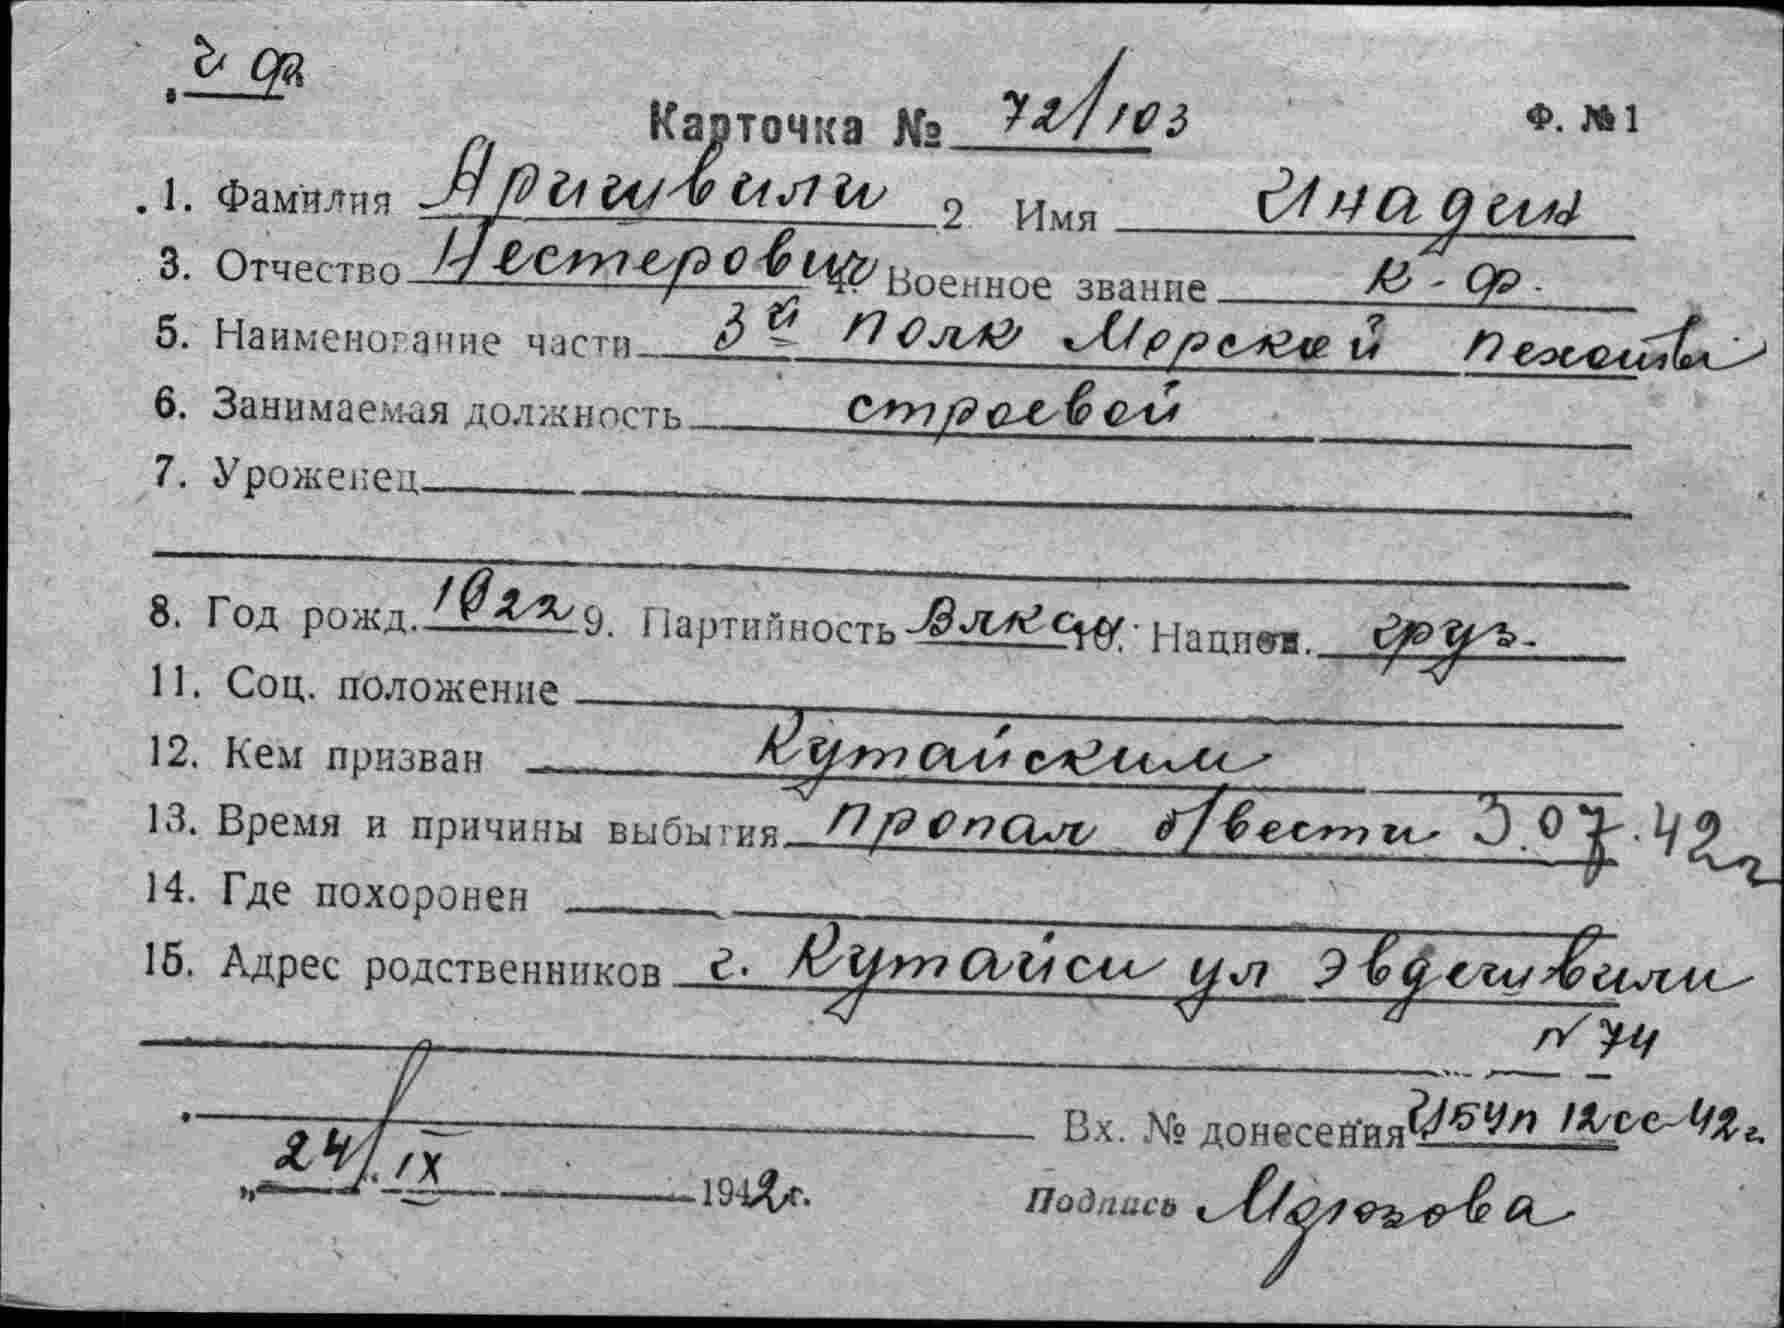 ч ф
Карточка № 72/103 Ф. №1
1. Фамилия Аришвили 2. Имя Инадин
3. Отчество Нестерович 4. Военное звание к-ф.
5. Наименование части 3й полк Морской пехоты
6. Занимаемая должность строевой
7. Уроженец
8. Год рожд. 1922 9. Партийность Влксм 10. Национ. груз.
11. Соц. положение
12. Кем призван Кутайским
13. Время и причины выбытия пропал б/вести 3.07.42г
14. Где похоронен
15. Адрес родственников г. Кутайси ул Эвдешвили
№ 74
Вх. № донесения 12сс 42г.
„24/.IX 1942г.
Подпись Морозова